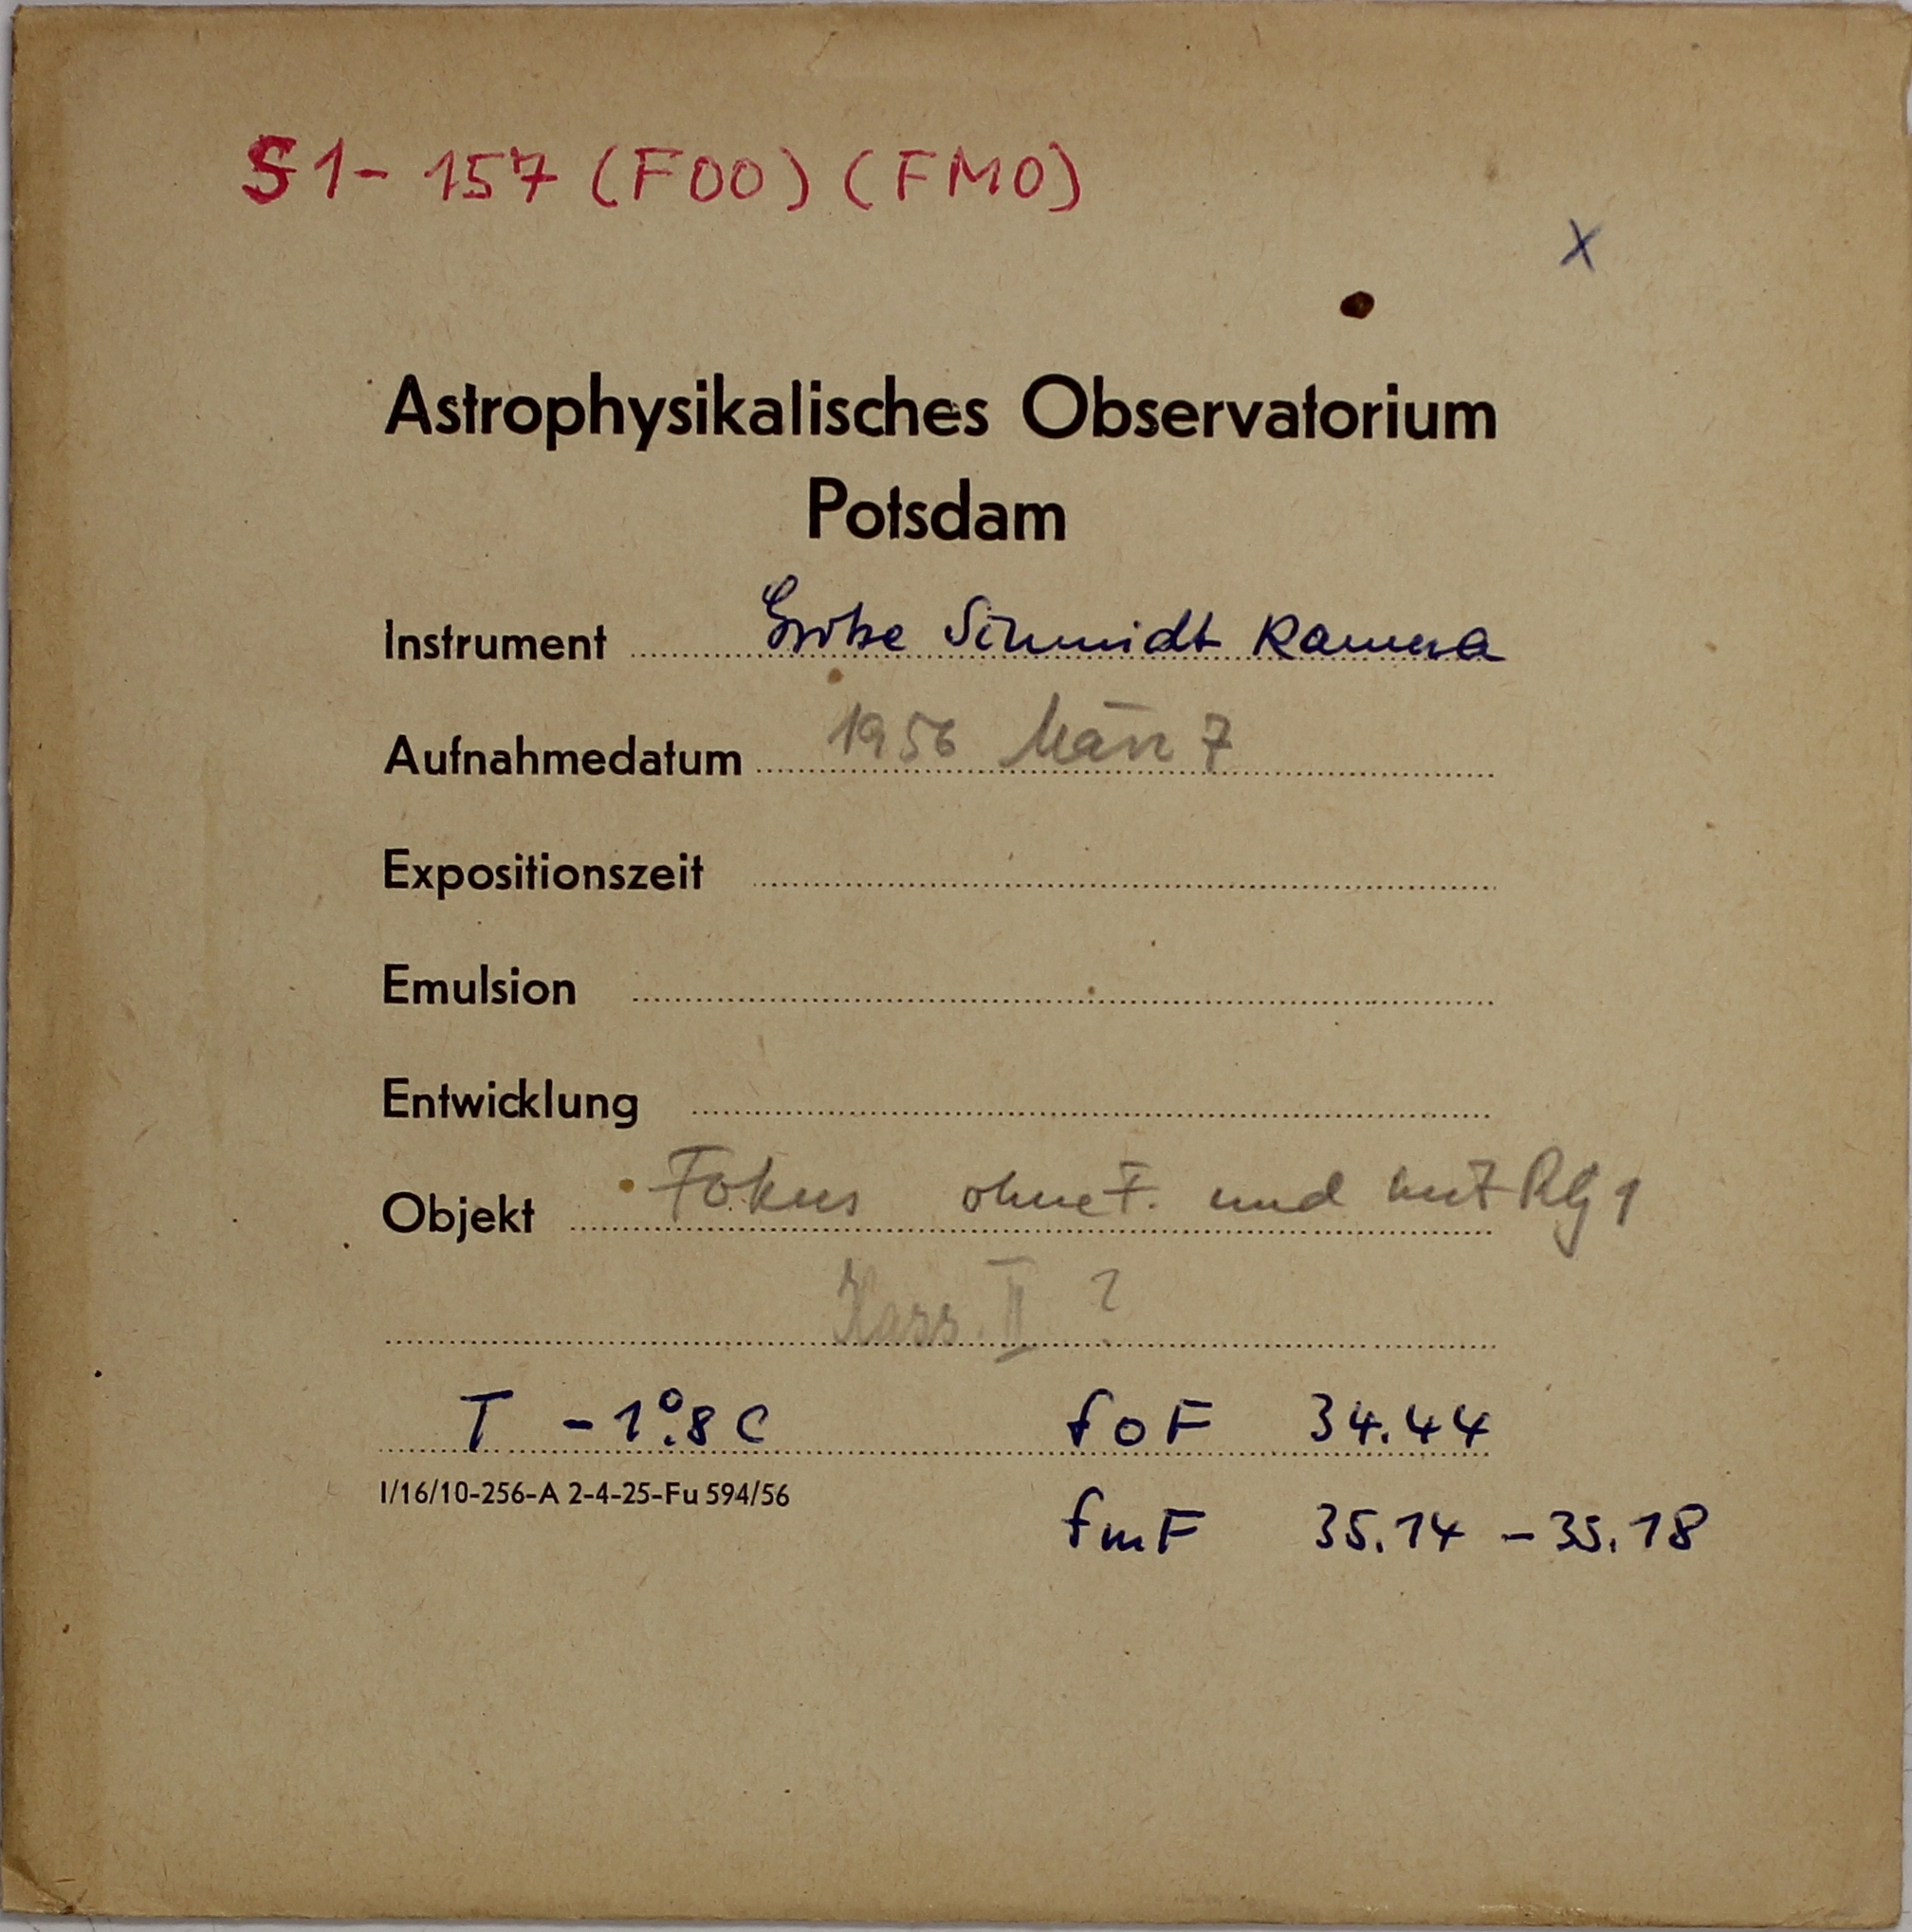 S1- 157 (FOO) (FMO)
X
Astrophysikalisches Observatorium
Potsdam
Instrument Große Schmidt Kamera
Aufnahmedatum 1956 März 7
Expositionszeit
Emulsion
Entwicklung
Objekt Fokus ohne F. und mit RG 1
Kass. II ?
T -1°.8 C foF 34.44
I/16/10-256-A 2-4-25-Fu 594/56
fmF 35.14 - 35.18